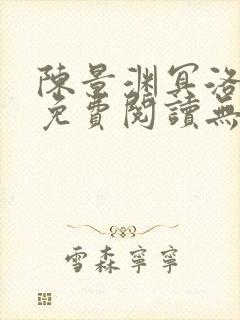 陳景渊冥洛
免費閱讀無
雪森寧寧